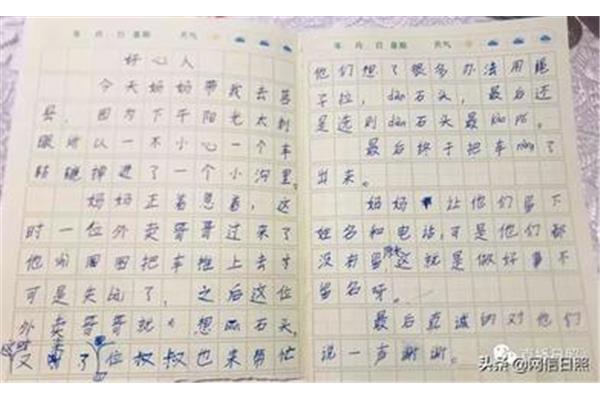 年 月 日 星期 天气
好心人
今天妈妈带我去莒
县，因为下午阳光太刺
眼所以一不小心一个车
轱辘掉进了一个小沟里。
妈妈正着急着，这
时一位外卖哥哥过来了
他 把车推上去
可是失 了，之后这位
外卖哥哥就 想 石头，
这时又来了 位叔叔也来帮忙
年 月 日 星期 天气
他们想了很多办法用绳
子拉，dàn石头，最后还
是选则dàn石头最kào pǔ。
最后终于把车nòng了
出来。
妈妈让他们留下
姓名和电话，可是他们都
没有留，这就是做好事不
留名呀。
最后真诚的对他们
说一声谢谢。
头条@网信日照